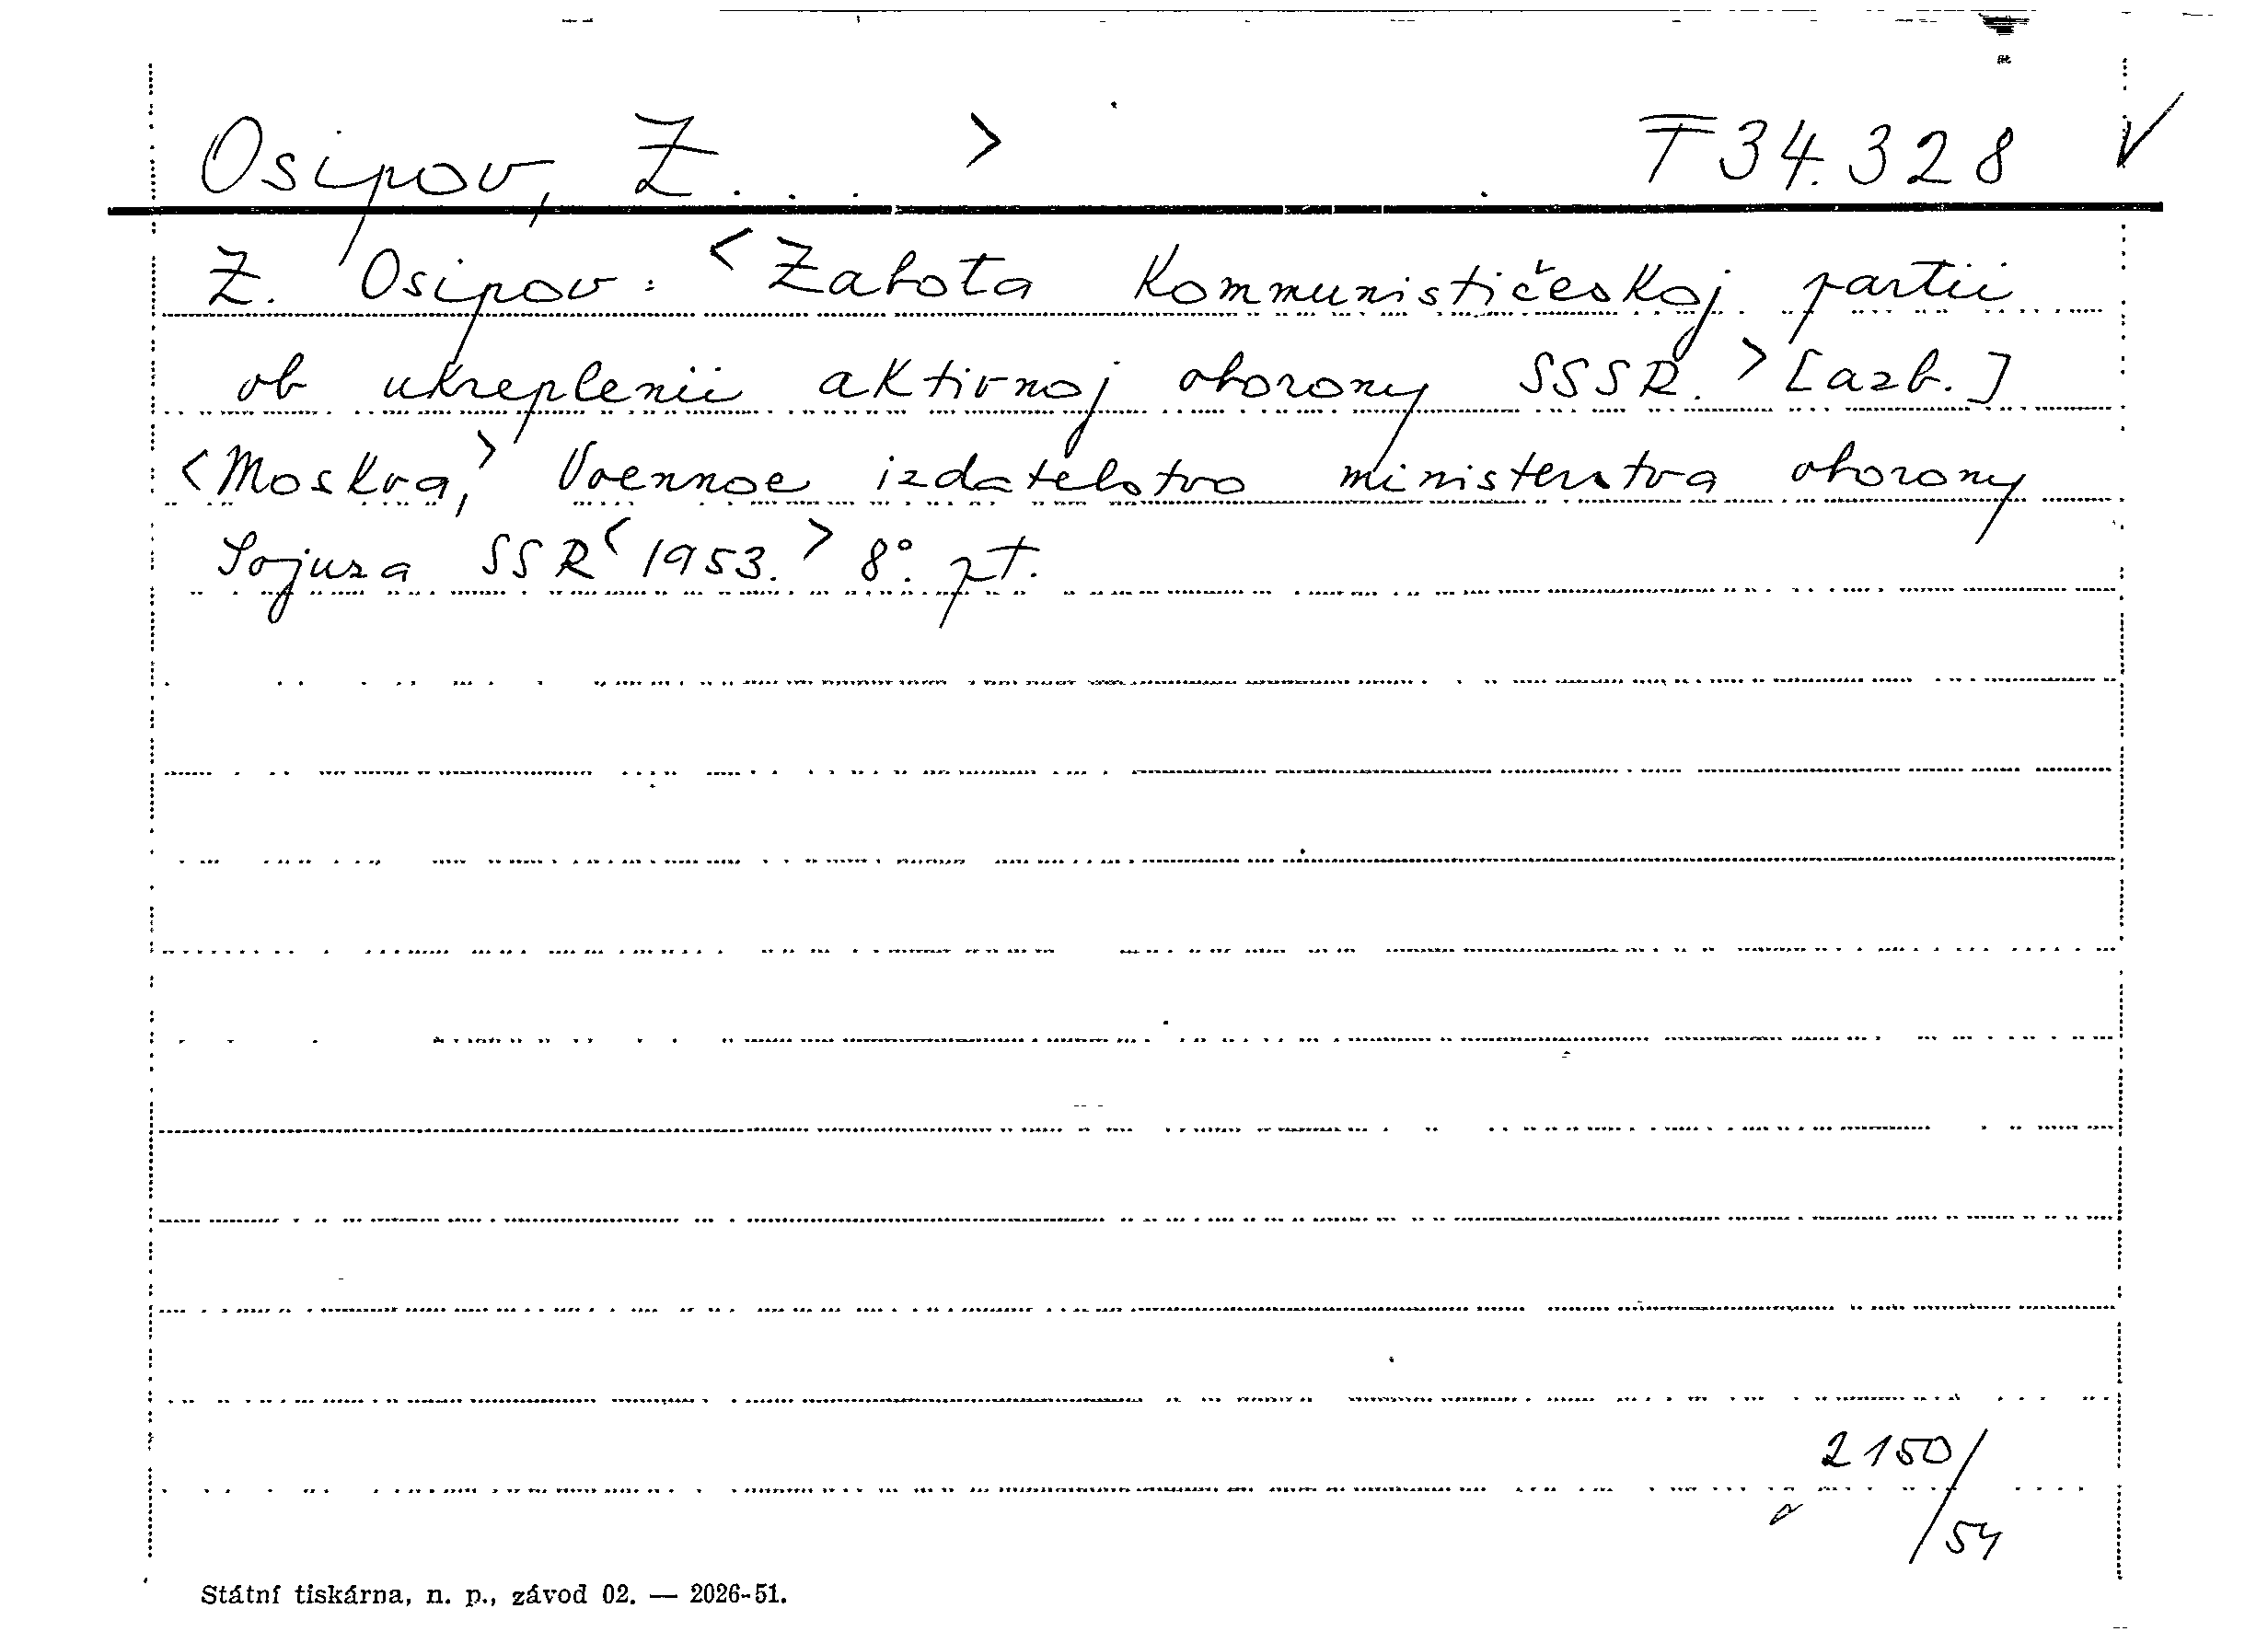 Osipov, Z. . . > T 34.328 V
Z. Osipov: <Zabota Kommunističeskoj partii
ob ukreplenii aktivnoj oborony SSSR.> [azb.]
<Moskva,> Voennoe izdatelstvo ministerstva oborony
Sojuza SSR <1953.> 8°. pt.
2150/
/54
Státní tiskárna, n. p., závod 02. — 2026-51.